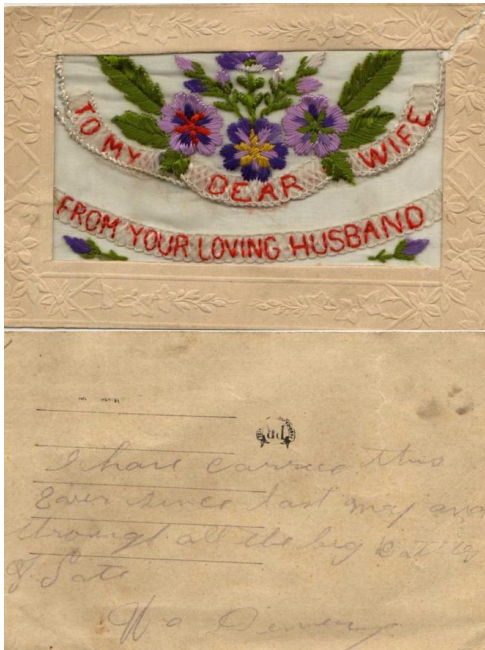 TO MY DEAR WIFE
FROM YOUR LOVING HUSBAND
I have carried this
Ever since last may and
through all the big Battles
of Late